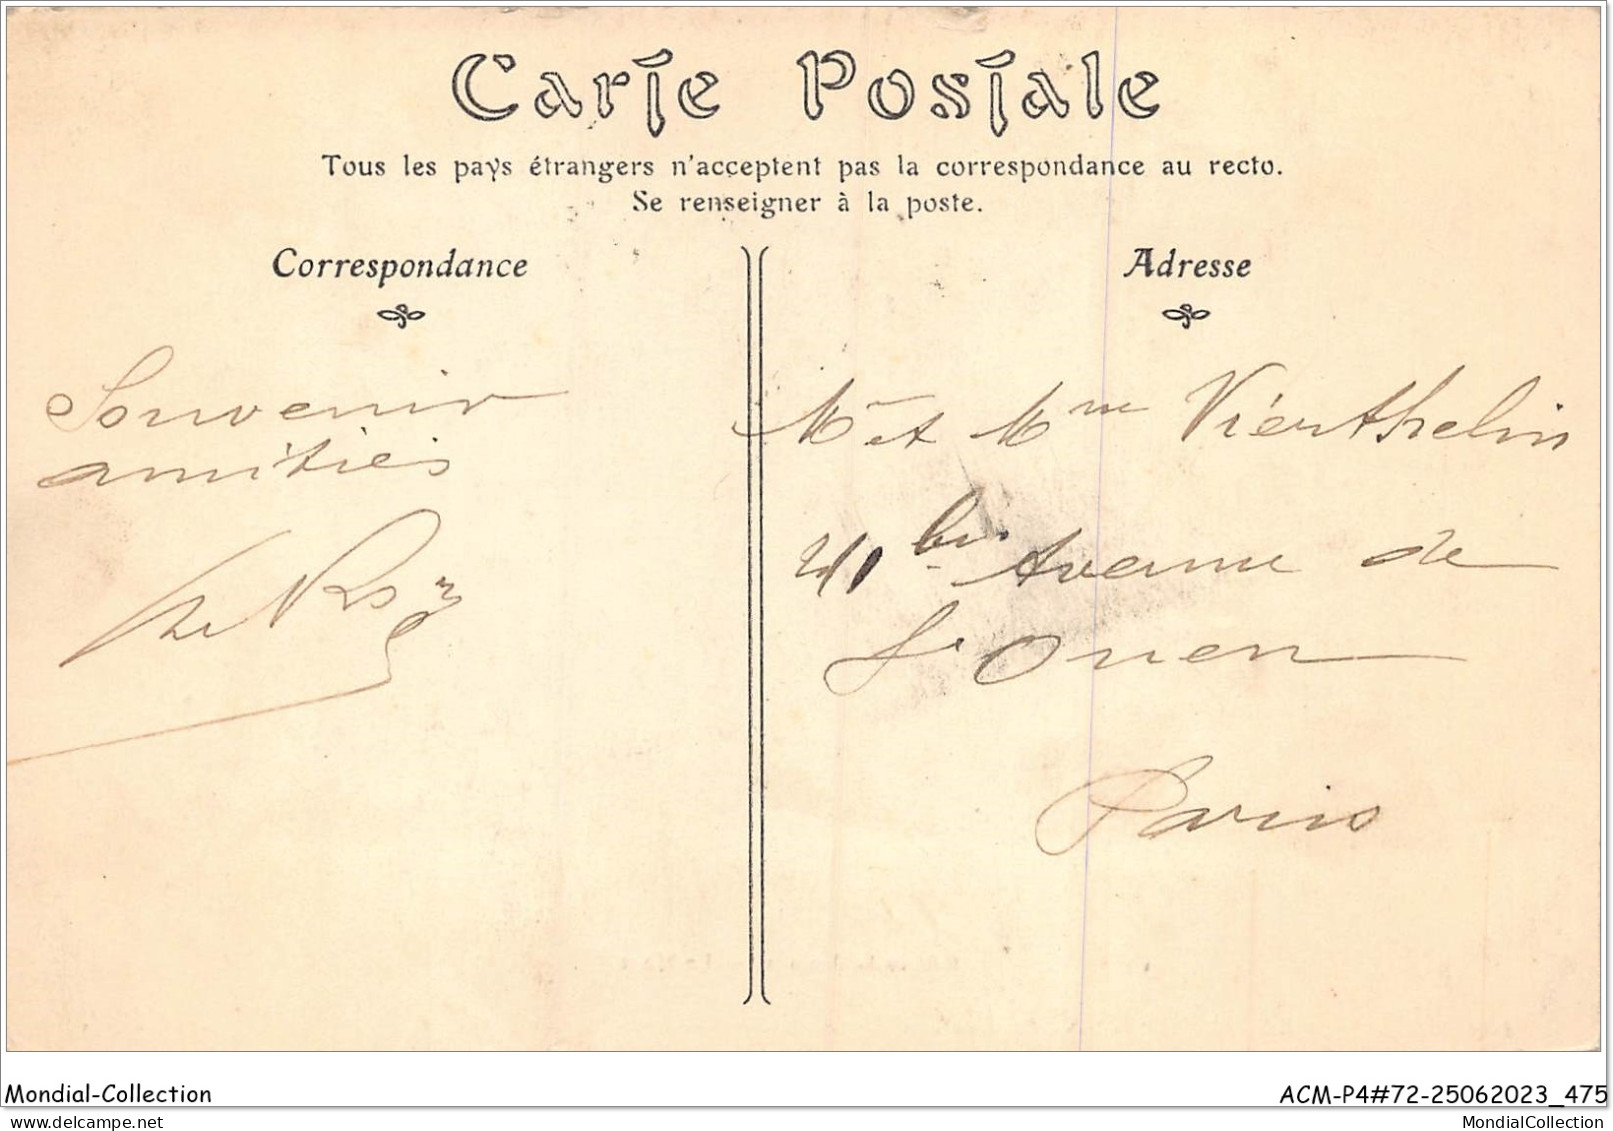 Carte Postale
Tous les pays étrangers n'acceptent pas la correspondance au recto.
Se renseigner à la poste.
Correspondance
Adresse
Souvenir
amitiés
Mr et Mme Vierthelin
bis Avenue de
St Ouen
Paris
Mondial-Collection
ACM-P4#72-25062023_475
mondial-collection
MondialCollection